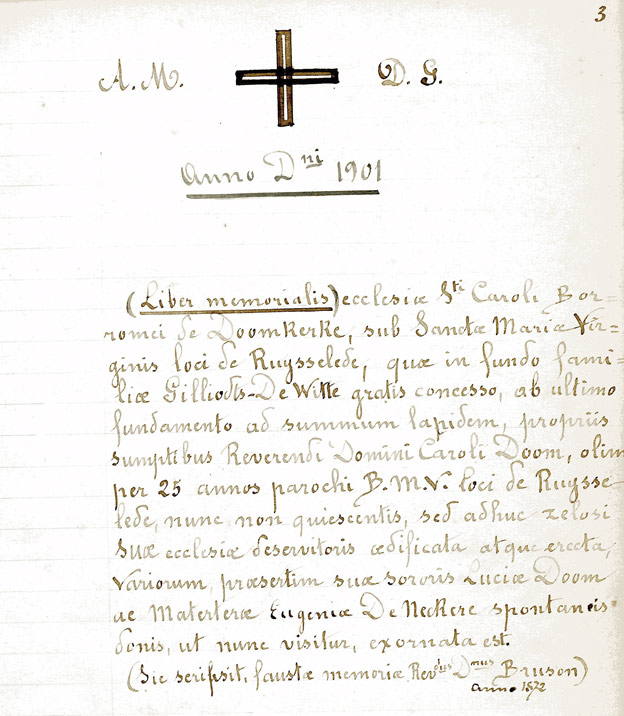 3
A. M. D. G.
Anno Dni 1901
(Liber memorialis) ecclesiæ Sti Caroli Bor-
romei de Doomkerke, sub Sanctæ Mariæ Vir-
ginis loci de Ruysselede, quæ in fundo fami-
liæ Gilliodts-De Witte gratis concesso, ab ultimo
fundamento ad summum lapidem, propriis
sumptibus Reverendi Domini Caroli Doom, olim
per 25 annos parochi B. M. V. loci de Ruysse-
lede, nunc non quiescentis, sed adhuc zelosi
suæ ecclesiæ deservitoris ædificata atque erecta,
variorum, præsertim suæ sororis Luciæ Doom
ac Materteræ Eugeniæ De Neckere spontaneis
donis, ut nunc visitur, exornata est.
(Sic scripsit, faustæ memoriæ Revdus Dnus Bruson)
anno 1872